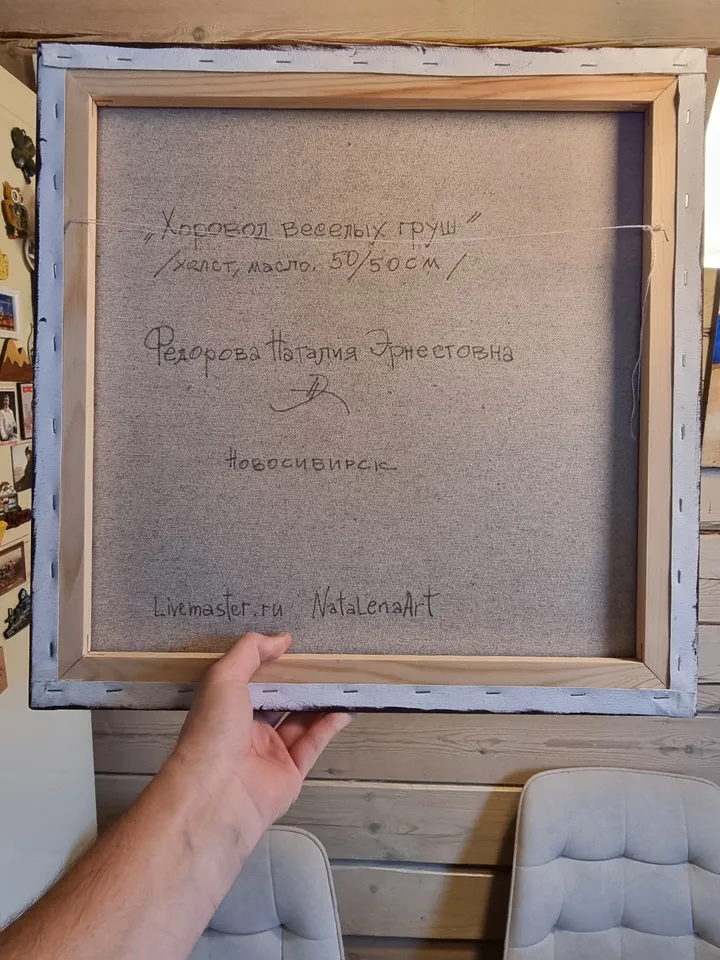 „Хоровод веселых груш"
/холст, масло. 50/50 см /
Федорова Наталия Эрнестовна
Новосибирск
Livemaster.ru NataLenaArt